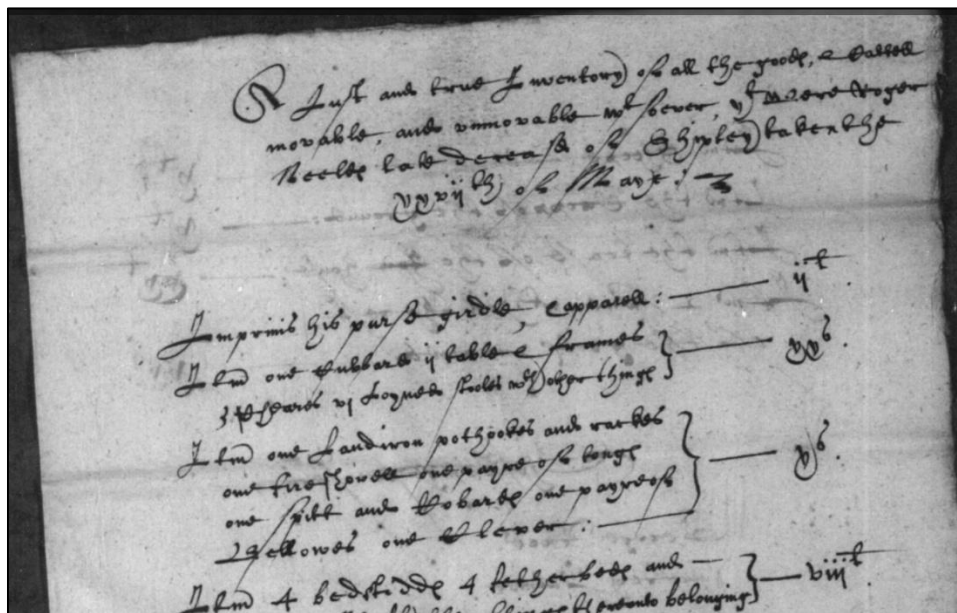 A Just and true Inventory of all the goodes, & Cattell
movable, and unmovable wt soever, yt were Roger
Neeles late decease of Shipley taken the
xxvijth of Maye:
Imprimis his purse girdle, & apparell: ijl
Itm one Cubbard ij table & frames
3 Chares vj Joyned stooles wth other thinges xxs.
Itm one Landiron pothookes and rackes
one fire showell one payre of tonges
one spitt and Cobardes one payre of xs.
Bellowes one Clever:
Itm 4 bedstiddes 4 fetherbedes and viijl.
thereunto belonging